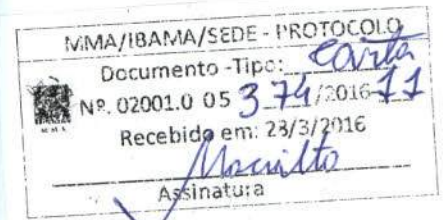 MMA/IBAMA/SEDE - PROTOCOLO
Documento -Tipo: Carta
Nº. 02001.0 05 374/2016-11
Recebido em: 23/3/2016
Assinatura